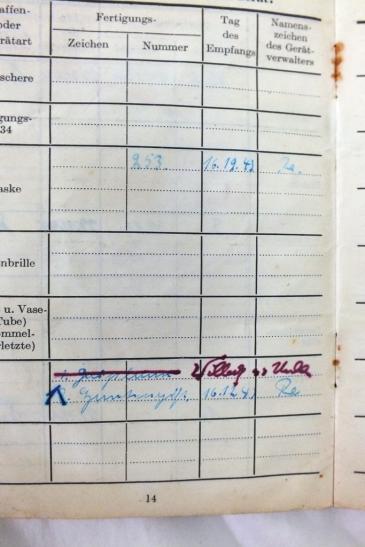 affen-
oder
rätart
Fertigungs-
Zeichen
Nummer
Tag
des
Empfangs
Namens-
zeichen
des Gerät-
verwalters
schere
gungs-
34
aske
253.
16.12.41
Re.
nbrille
u. Vase-
Tube)
ommel-
rletzte)
16.12.41
Re
14